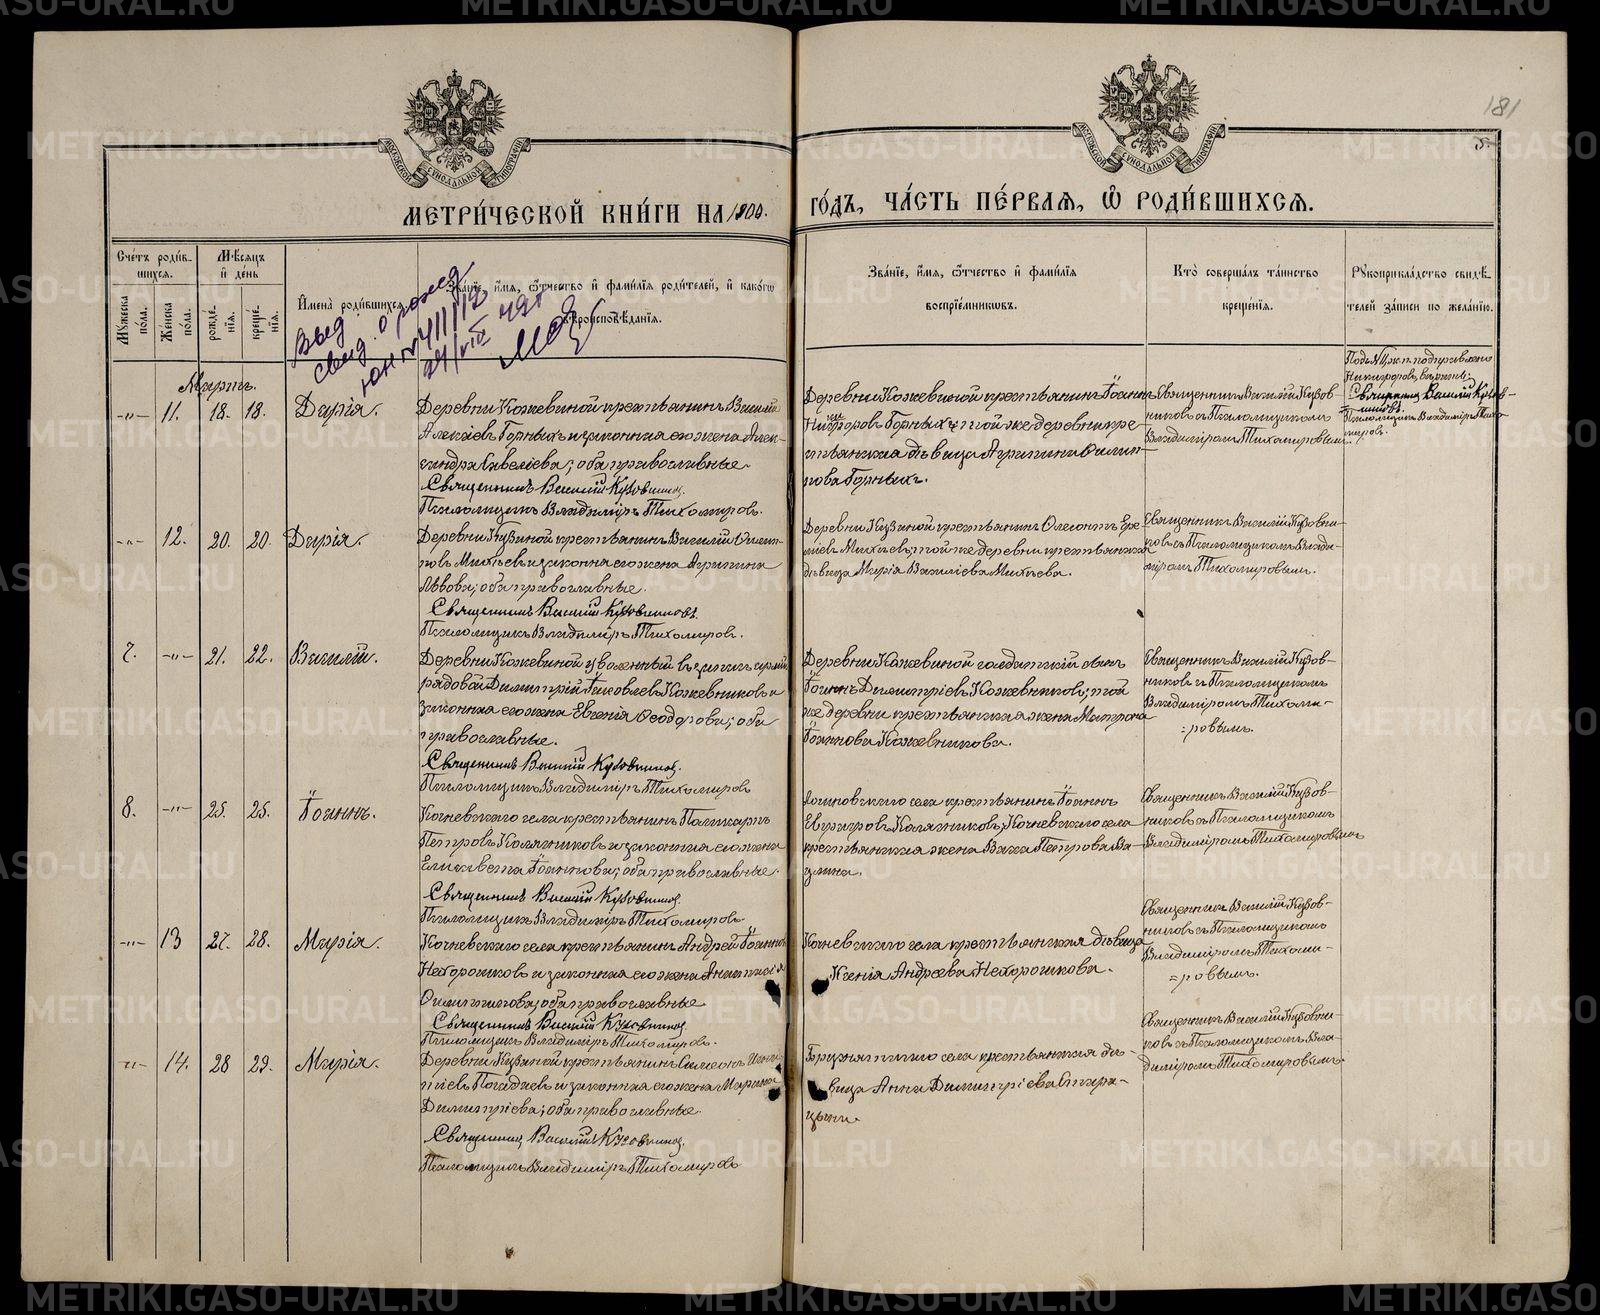 METRIKI.GASO-URAL.RU
181
5.
МОСКОВСКОЙ СѴНОДАЛЬНОЙ ТИПОГРАФІИ
МОСКОВСКОЙ СѴНОДАЛЬНОЙ ТИПОГРАФІИ
МЕТРИ́ЧЕСКОЙ КНИ́ГИ НА 1900.
ГО́ДЪ, ЧА́СТЬ ПЕ́РВАѦ, Ѽ РОДИ́ВШИХСѦ.
Сче́тъ роди́в-
шихся.
Мꙋжеска по́ла.
Же́нска по́ла.
Мѣ́сѧцъ
и҆ де́нь
рожде́-нїѧ.
креще́-нїѧ.
И҆мена̀ роди́вшихся.
Зва́нїе, и҆́мѧ, ѻ҆́тчество и҆ фами́лїѧ роди́телей, и҆ како́гѡ
вѣроисповѣ́данїѧ.
Зва́нїе, и҆́мѧ, ѻ҆́тчество и҆ фами́лїѧ
воспрїе́мникѡвъ.
Кто̀ соверша́лъ та́инство
креще́нїѧ.
Рꙋкоприкла́дство свидѣ́-
телей за́писи по жела́нїю.
Выд.
свид. о рожд
24/VII 49г
Мартъ.
-"- 11. 18. 18. Дарія.
Деревни Кожевиной крестьянинъ Василій
Алексіевъ Горныхъ и законная его жена Алек-
сандра Савеліева; оба православные.
Священникъ Василій Кузовниковъ.
Псаломщикъ Владиміръ Тихомировъ.
Деревни Кожевиной крестьянинъ Іоаннъ
Никифоровъ Горныхъ и той же деревни кре-
стьянская дѣвица Агрипина Филип-
пова Горныхъ.
Священникъ Василій Кузов-
никовъ съ Псаломщикомъ
Владиміромъ Тихомировымъ.
Священникъ Василій Кузов-
никовъ.
Псаломщикъ Владиміръ Тихо-
мировъ.
-"- 12. 20. 20. Дарія.
Деревни Кузиной крестьянинъ Василій Филип-
повъ Михѣевъ и законная его жена Агрипина
Львова; оба православные.
Священникъ Василій Кузовниковъ.
Псаломщикъ Владиміръ Тихомировъ.
Деревни Кузиной крестьянинъ Ѳеоктистъ
Михѣевъ; той же деревни крестьянская
дѣвица Марія Василіева Михѣева.
Священникъ Василій Кузовни-
ковъ съ Псаломщикомъ Влади-
міромъ Тихомировымъ.
7. -"- 21. 22. Василій.
Деревни Кожевиной уволенный въ запасъ арміи
рядовой Димитрій Іаковлевъ Кожевниковъ и
законная его жена Евгенія Ѳеодорова; оба
православные.
Священникъ Василій Кузовниковъ.
Псаломщикъ Владиміръ Тихомировъ
Деревни Кожевиной солдатскій сынъ
Іоаннъ Димитріевъ Кожевниковъ; той
же деревни крестьянская жена Матрона
Іоаннова Кожевникова.
Священникъ Василій Кузов-
никовъ съ Псаломщикомъ
Владиміромъ Тихоми-
=ровымъ.
8. -"- 25. 25. Іоаннъ.
Кочневскаго села крестьянинъ Поликарпъ
Петровъ Колясниковъ и законная его жена
Елисавета Іоаннова; оба православные.
Священникъ Василій Кузовниковъ.
Псаломщикъ Владиміръ Тихомировъ
села крестьянинъ Іоаннъ
Колясниковъ; Кочневскаго села
крестьянская жена Васса Петрова
Священникъ Василій Кузов-
никовъ съ Псаломщикомъ
Владиміромъ Тихомировымъ
-"- 13 27. 28. Марія.
Кочневскаго села крестьянинъ Андрей Іоанновъ
Нехорошковъ и законная его жена Анастасія
Филиппова; оба православные
Священникъ Василій Кузовниковъ
Псаломщикъ Владиміръ Тихомировъ.
Кочневскаго села крестьянская дѣвица
Ксенія Андреева Нехорошкова.
Священникъ Василій Кузов-
никовъ съ Псаломщикомъ
Владиміромъ Тихоми-
=ровымъ.
-"- 14. 28 29. Марія.
Деревни Кузиной крестьянинъ Симеонъ
Погадаевъ и законная его жена Марина
Димитріева; оба православные.
Священникъ Василій Кузовниковъ.
Псаломщикъ Владиміръ Тихомировъ
Бруснятскаго села крестьянская дѣ-
вица Анна Димитріева Стари-
цына.
Священникъ Василій Кузовни-
ковъ съ Псаломщикомъ Вла-
диміромъ Тихомировымъ.